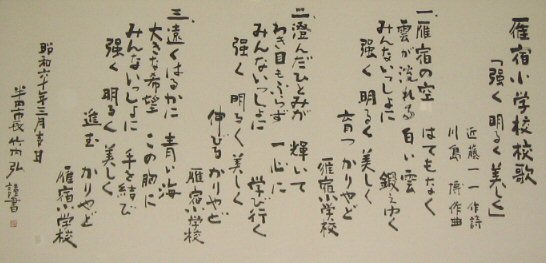 雁宿小学校校歌
「強く明るく美しく」
近藤一一 作詩
川島 博 作曲
一、雁宿の空 はてもなく
雲が流れる 白い雲
みんないっしょに 鍛えゆく
強く 明るく 美しく
育つ かりやど
雁宿小学校
二、澄んだひとみが 輝いて
わき目もふらず 一心に
みんないっしょに 学び行く
強く 明るく 美しく
伸びる かりやど
雁宿小学校
三、遠くはるかに 青い海
大きな希望 この胸に
みんないっしょに 手を結び
強く 明るく 美しく
進む かりやど
雁宿小学校
昭和六十年三月吉日
半田市長 竹内 弘 謹書